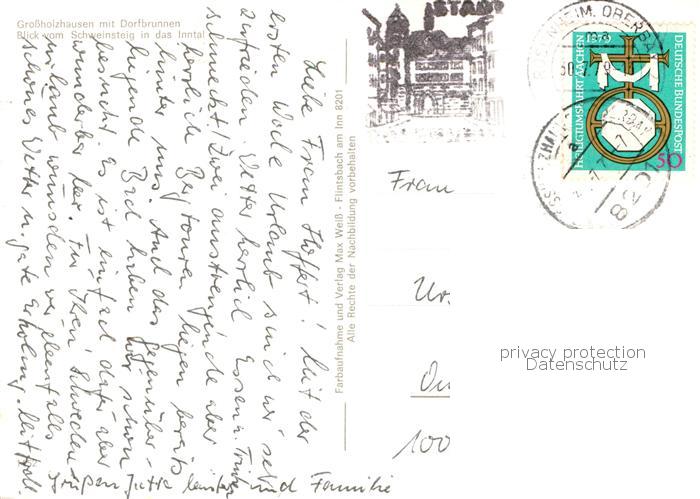 Großholzhausen mit Dorfbrunnen
Blick vom Schweinsteig in das Inntal
Liebe Frau Hoffert! Mit der
ersten Woche Urlaub sind wir sehr
zufrieden. Wetter herrlich, Essen u. Trinken
schmeckt! Zwei anstrengende aber
herrliche Bergtouren liegen bereits
hinter uns. Auch das gegenüber-
liegende Bad haben wir schon
besucht. Es ist einfach
wunderbar hier. Für Ihren Schweden
urlaub wünschen wir ebenfalls
schönes Wetter u. gute Erholung. Mit herzl.
Grüßen Jutta und Familie
Farbaufnahme und Verlag Max Weiß - Flintsbach am Inn 8201
Alle Rechte der Nachbildung vorbehalten
STADT
ROSENHEIM, OBERBAY
HEILIGTUMSFAHRT AACHEN 1979
DEUTSCHE BUNDESPOST
50
820
Frau
Ur.
100
privacy protection
Datenschutz